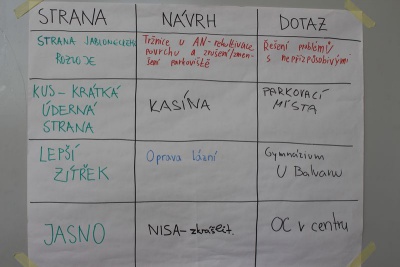 STRANA
NÁVRH
DOTAZ
STRANA JABLONECKÉHO
ROZVOJE
Tržnice u AN-rekultivace
povrchu a zrušení/zmen-
šení parkoviště
Řešení problémů
s nepřizpůsobivými
KUS-KRÁTKÁ
ÚDERNÁ
STRANA
KASÍNA
PARKOVACÍ
MÍSTA
LEPŠÍ
ZÍTŘEK
Oprava lázní
Gymnázium
U Balvanu
JASNO
NISA-zkrášlit.
OC v centru